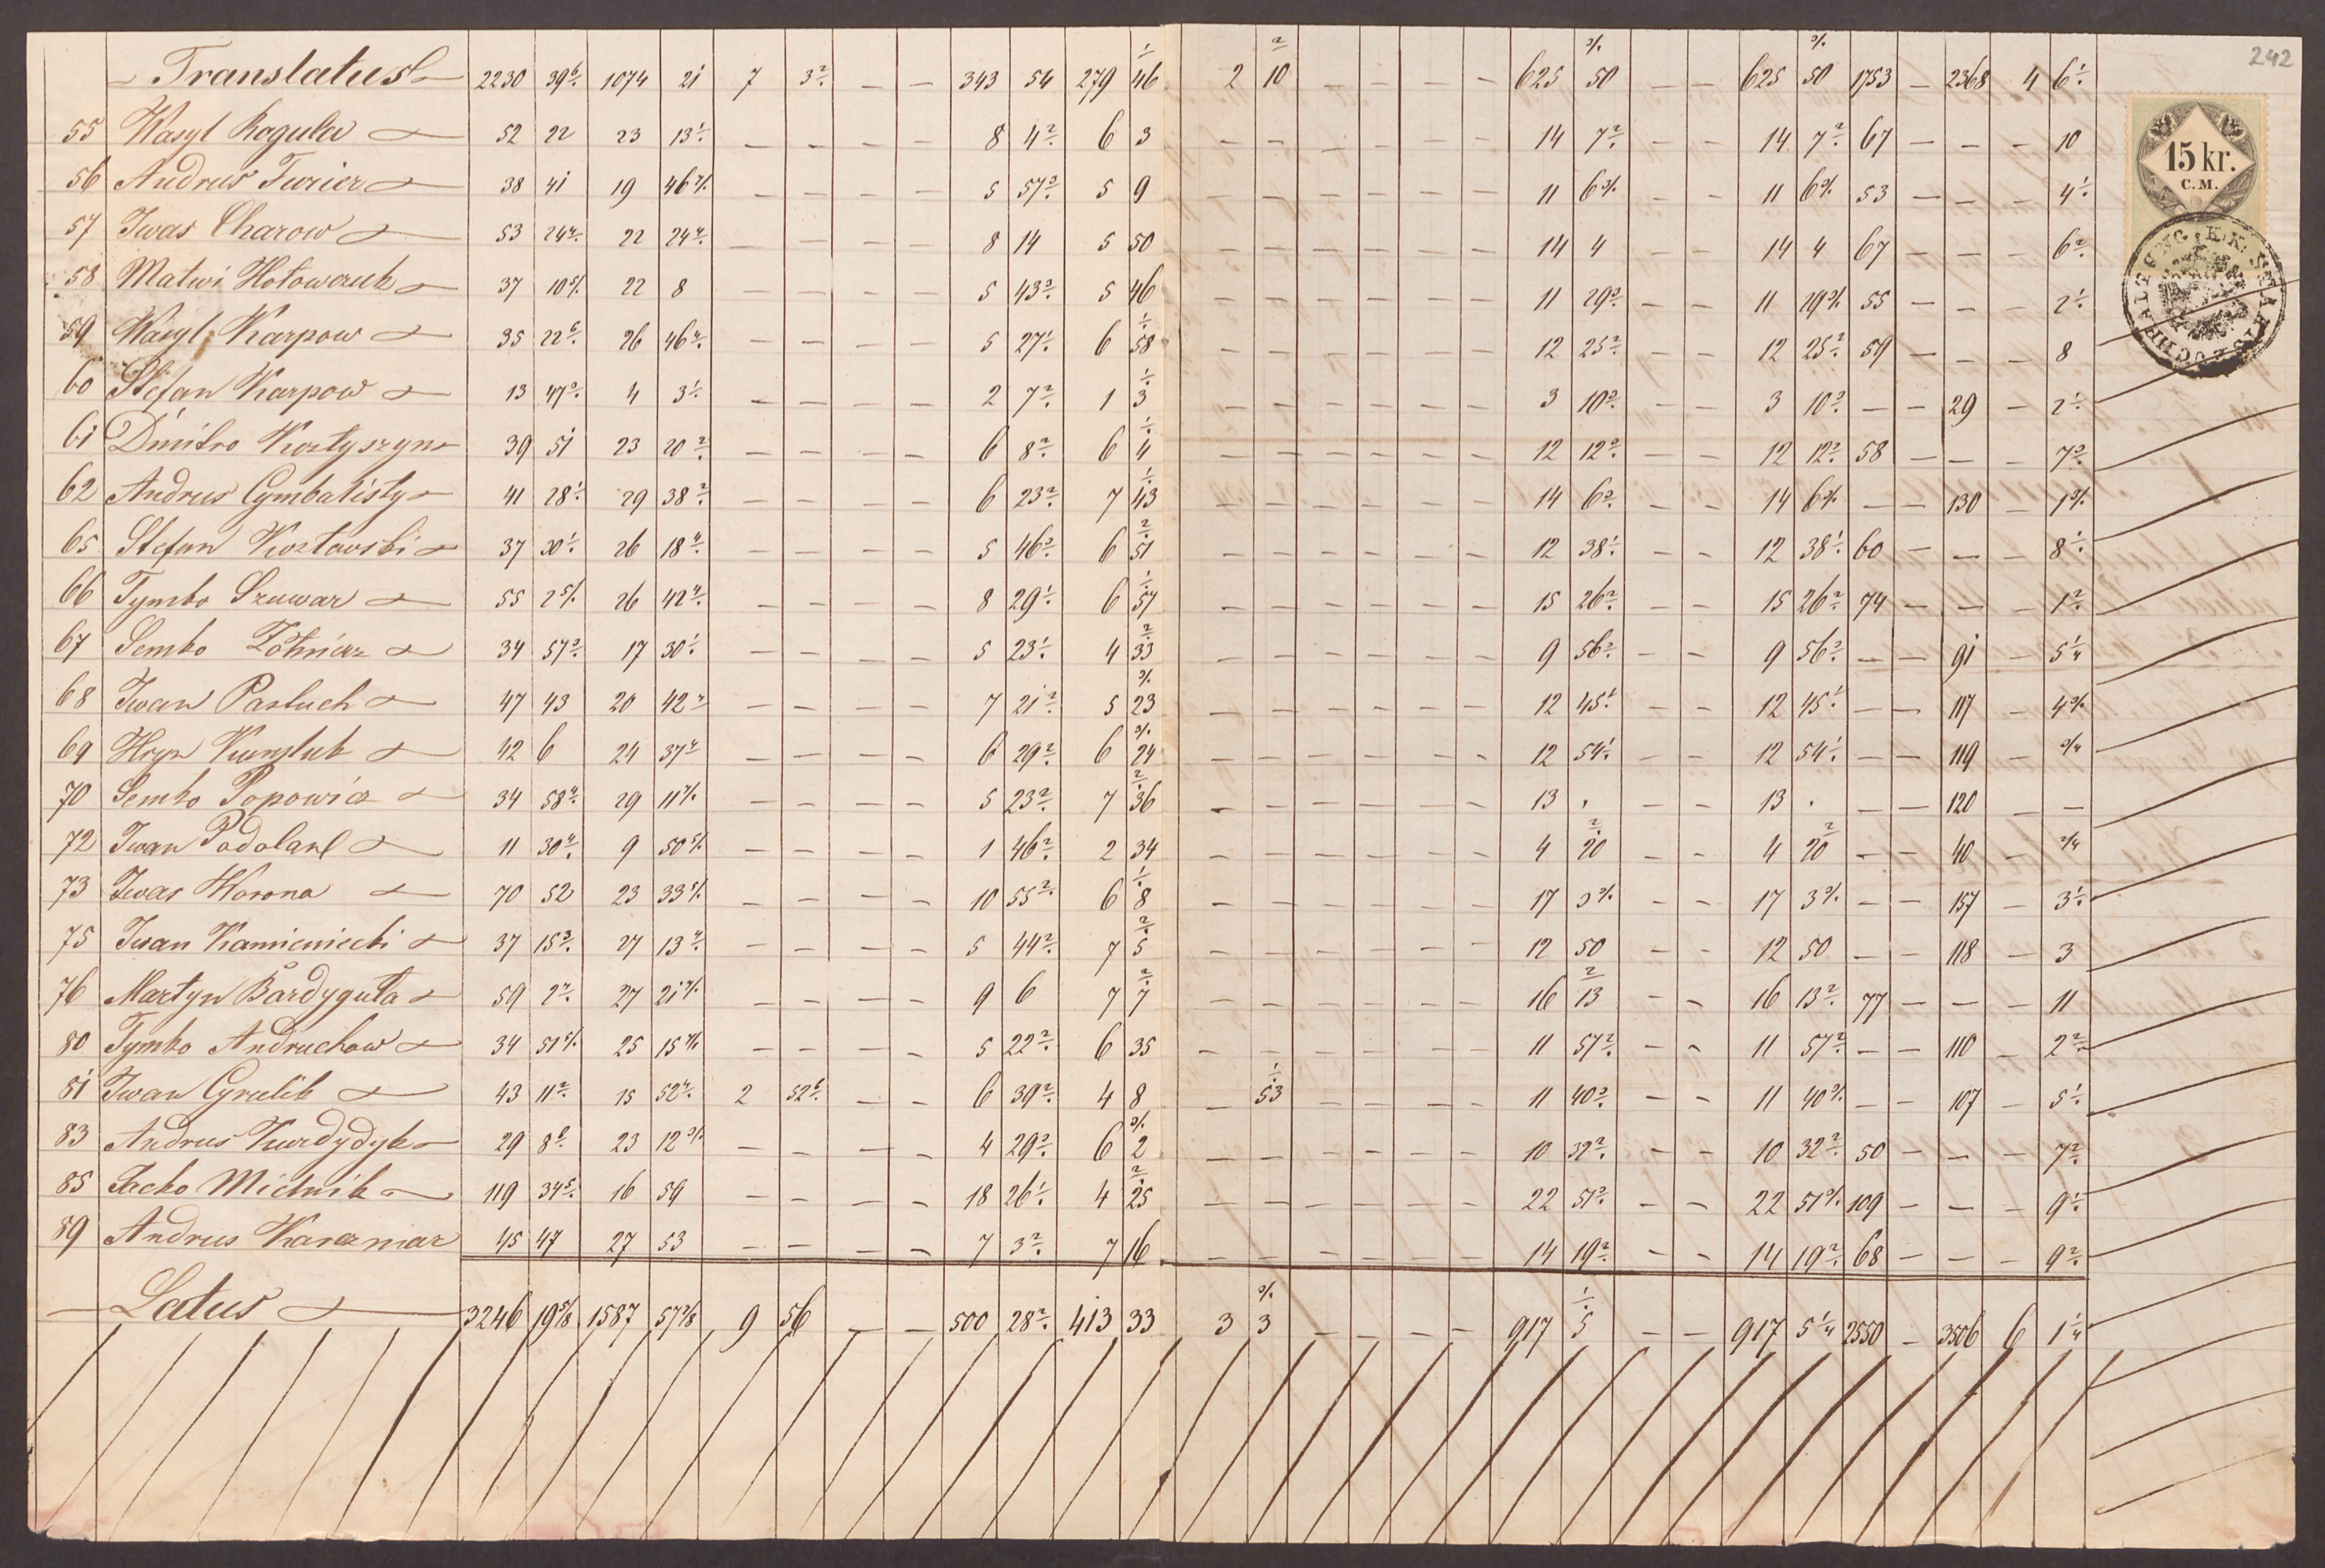 242
Translatus 2230 39 6/. 1074 21 7 3 2/. — — 343 54 279 46 1/. 2 10 2/. — — — — 625 50 3/. — — 625 50 3/. 1753 — 2368 4 6 1/.
15 kr.
C.M.
55 Wasyl Rogula 52 22 23 13 1/. — — — — 8 4 2/. 6 3 — — — — — — 14 7 2/. — — 14 7 2/. 67 — — — 10
56 Andrus Turier 38 41 19 46 — — — — 5 57 5 9 — — — — — — 11 6 3/. — — 11 6 3/. 53 — — — 4 1/.
57 Iwas Charow 53 24 22 24 — — — — 8 14 5 50 — — — — — — 14 4 — — 14 4 67 — — — 6 2/.
58 Matwi Hotowczuk 37 10 22 8 — — — — 5 43 5 46 — — — — — — 11 29 — — 11 29 3/. 55 — — — 2 1/.
59 Wasyl Karpow 35 22 6/. 26 46 — — — — 5 27 1/. 6 58 1/. — — — — — — 12 25 2/. — — 12 25 2/. 59 — — — 8
60 Stefan Karpow 13 47 4 3 1/. — — — — 2 7 2/. 1 3 1/. — — — — — — 3 10 — — 3 10 — — 29 — 2 1/.
61 Dmitro Kostyszyn 39 51 23 20 2/. — — — — 6 8 2/. 6 4 1/. — — — — — — 12 12 — — 12 12 58 — — — 7
62 Andrus Cymbalisty 41 28 1/. 29 38 2/. — — — — 6 23 2/. 7 43 1/. — — — — — — 14 6 — — 14 6 3/. — — 130 — 1 3/.
65 Stefan Kozłowski 37 30 1/. 26 18 — — — — 5 46 6 51 2/. — — — — — — 12 38 1/. — — 12 38 1/. 60 — — — 8 1/.
66 Tymko Szuwar 55 2 5/. 26 42 — — — — 8 29 1/. 6 57 1/. — — — — — — 15 26 2/. — — 15 26 2/. 74 — — — 1 2/.
67 Semko Żołnierz 34 57 17 30 1/. — — — — 5 23 1/. 4 33 2/. — — — — — — 9 56 — — 9 56 — — 91 — 5 1/4
68 Iwan Pastuch 47 43 20 42 — — — — 7 21 2/. 5 23 3/. — — — — — — 12 45 1/. — — 12 45 1/. — — 117 — 4 3/.
69 Hryn 42 6 24 37 — — — — 6 29 2/. 6 24 3/. — — — — — — 12 54 1/. — — 12 54 1/. — — 119 — 3/4
70 Semko Popowicz 34 58 29 11 — — — — 5 23 2/. 7 36 2/. — — — — — — 13 . — — 13 . — — 120 — —
72 Iwan Podolan 11 30 9 50 5/. — — — — 1 46 2/. 2 34 — — — — — — 4 20 2/. — — 4 20 2/. — — 40 —
73 Iwas Worona 70 52 23 33 — — — — 10 55 2/. 6 8 1/. — — — — — — 17 3 3/. — — 17 3 3/. — — 157 — 3 1/.
75 Iwan Kamieniecki 37 15 27 13 — — — — 5 44 2/. 7 5 2/. — — — — — — 12 50 — — 12 50 — — 118 — 3
76 Martyn Bardyguła 59 2 27 21 — — — — 9 6 7 7 2/. — — — — — — 16 13 2/. — — 16 13 2/. 77 — — — 11
80 Tymko Andruchow 34 51 25 15 — — — — 5 22 2/. 6 35 — — — — — — 11 57 2/. — — 11 57 2/. — — 110 — 2 2/.
81 Iwan Cyrulik 43 11 2/. 15 52 2 52 6/. — — 6 39 2/. 4 8 — 53 1/. — — — — 11 40 — — 11 40 3/. — — 107 — 5 1/.
83 Andrus Kurdydyk 29 8 6/. 23 12 — — — — 4 29 6 2 3/. — — — — — — 10 32 2/. — — 10 32 2/. 50 — — — 7 2/.
85 Jacko Mielnik 119 34 5/. 16 59 — — — — 18 26 1/. 4 25 2/. — — — — — — 22 51 — — 22 51 3/. 109 — — — 9 1/.
89 Andrus Karaemar 45 47 27 53 — — — — 7 3 2/. 7 16 — — — — — — 14 19 2/. — — 14 19 2/. 68 — — — 9 2/.
Latus 3246 19 5/8 1587 57 9 56 — — 500 28 2/. 413 33 3 3 3/. — — — — 917 5 1/. — — 917 5 1/4 2550 — 3506 6 1 1/4